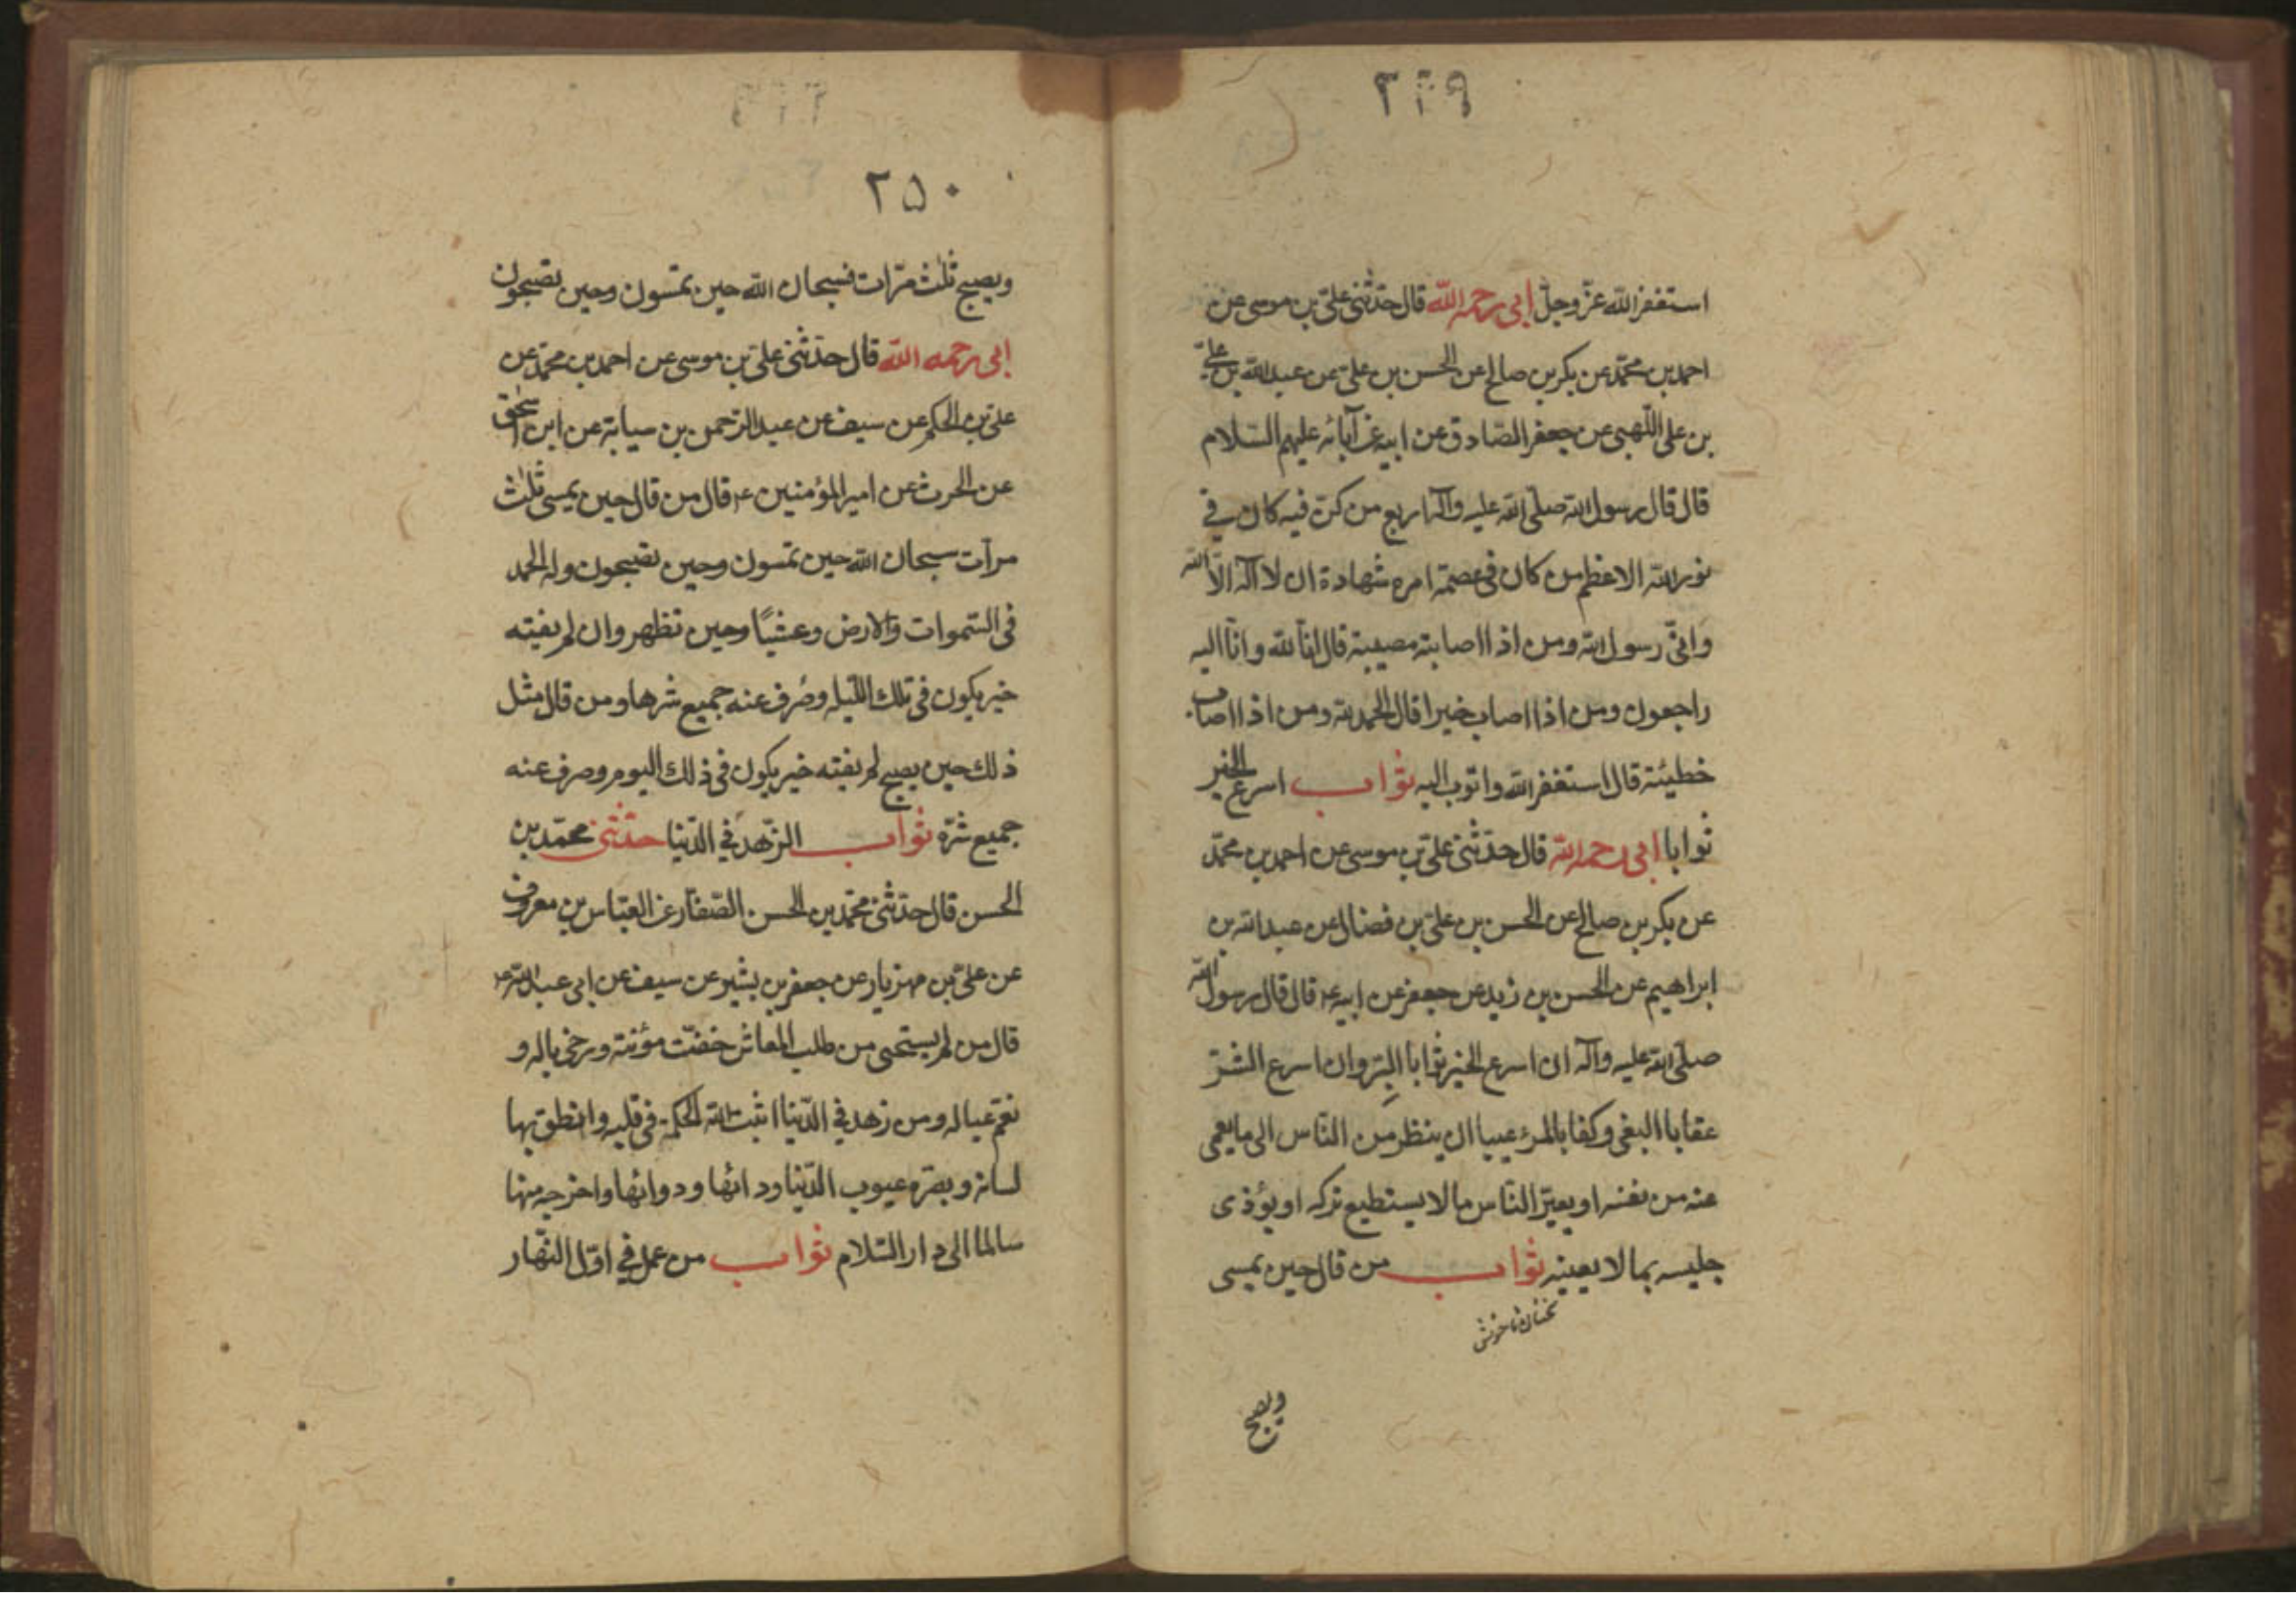 استغفر الله عزّ وجلّ ابى رحمه الله قال حدّثنى علىّ بن موسى عن
احمد بن محمّد عن بكر بن صالح عن الحسن بن علىّ عن عبد الله بن علىّ
بن على اللّهبى عن جعفر الصّادق عن ابيه عن آبائه عليهم السّلام
قال قال رسول الله صلّى الله عليه وآله اربع من كنّ فيه كان فى
نور الله الاعظم من كان فى عصمة امره شهادة ان لا آله الّا الله
وانّى رسول الله ومن اذا اصابته مصيبة قال انّا لله وانّا اليه
راجعون ومن اذا اصاب خيرا قال الحمد لله ومن اذا اصاب
خطيئة قال استغفر الله واتوب اليه ثواب اسرع الخير
ثوابا ابى رحمه الله قال حدّثنى علىّ بن موسى عن احمد بن محمّد
عن بكر بن صالح عن الحسن بن علىّ بن فضال عن عبد الله بن
ابراهيم عن الحسن بن زيد عن جعفر عن ابيه ع قال قال رسول الله
صلّى الله عليه وآله ان اسرع الخير ثوابا البرّ وان اسرع الشرّ
عقابا البغى وكفا بالمرء عيبا ان ينظر من النّاس الى ما يعمى
عنه من نفسه او يعيّر النّاس ما لا يستطيع تركه او يؤذى
جليسه بما لا يعينه ثواب من قال حين يمسى
ويصبح
٢٥٠
ويصبح ثلث مرّات فسبحان الله حين تمسون وحين تصبحون
ابى رحمه الله قال حدّثنى علىّ بن موسى عن احمد بن محمّد عن
علىّ بن الحكم عن سيف عن عبد الرّحمن بن سيابة عن ابن اسحق
عن الحرث عن امير المؤمنين ع قال من قال حين يمسى ثلث
مرآت سبحان الله حين تمسون وحين تصبحون وله الحمد
فى السّموات والارض وعشيّا وحين تظهرون لم يفته
خير يكون فى تلك اللّيله وصُرف عنه جميع شرها ومن قال مثل
ذلك حين يصبح لم يفته خير يكون فى ذلك اليوم وصرف عنه
جميع شرّه ثواب الزّهد فى الدّنيا حدّثنى محمّد بن
الحسن قال حدّثنى محمّد بن الحسن الصّفّار عن العبّاس بن معروف
عن علىّ بن مهزيار عن جعفر بن بشير عن سيف عن ابى عبد الله ع
قال من لم يستحى من طلب المعاش خفّت مؤنته ورخى باله و
نعّم عياله ومن زهد فى الدّنيا اثبت الله الحكمة فى قلبه وانطق بها
لسانه وبصّره عيوب الدّنيا ودائها ودوائها واخرجه منها
سالما الى دار السّلام ثواب من عمل فى اوّل النّهار